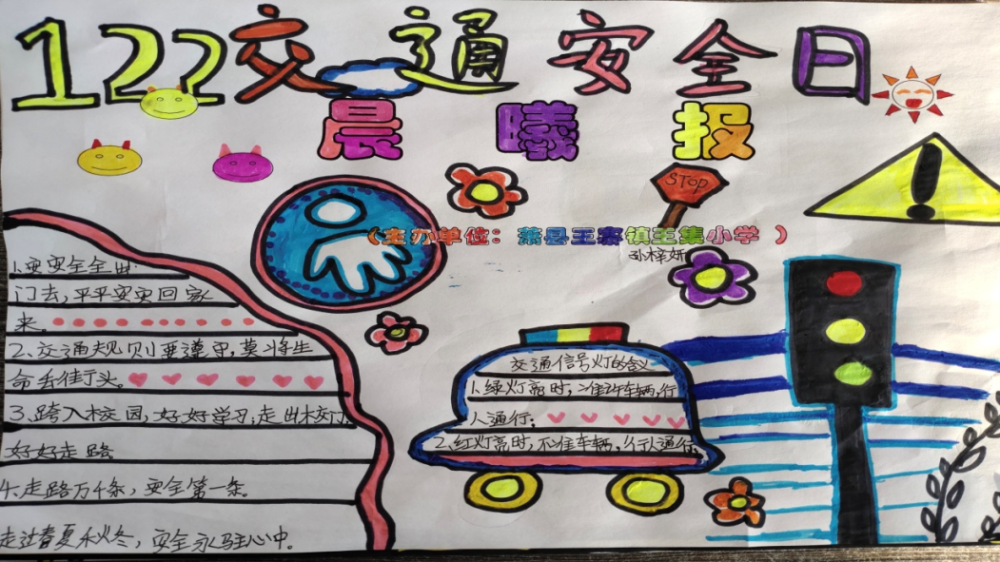 122交通安全日
晨曦报
STOP
（主办单位：萧县王寨镇王集小学）
孙梓妍
1.安安全全出
门去，平平安安回家
来。
2、交通规则要遵守，莫将生
命丢街头。
3、跨入校园，好好学习，走出校门，
好好走路
4.走路万千条，安全第一条。
走过春夏秋冬，安全永驻心中。
交通信号灯的含义
1.绿灯亮时，准许车辆，行
人通行；
2、红灯亮时，不准车辆，行人通行。